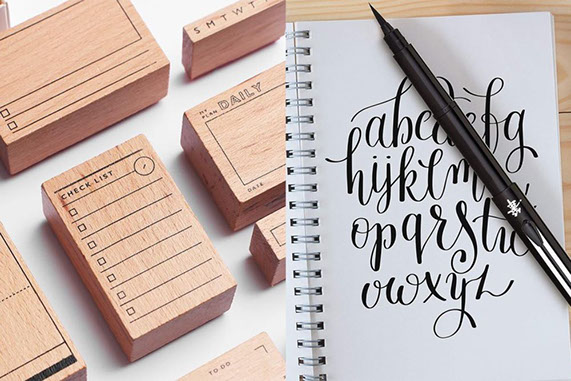 SMTWT
MY
PLAN DAILY
DATE
CHECK LIST
TO DO
abcdefg
hijklm
opqrstu
vwxyz